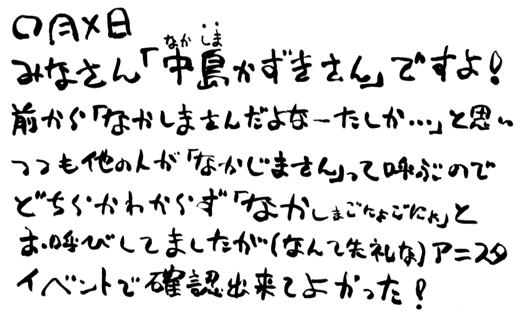 〇月×日
みなさん「中島かずきさん」ですよ!
前から「なかしまさんだよなーたしか…」と思い
つつも他の人が「なかじまさん」って呼ぶので
どちらかわからず「なかしまごにょごにょ」と
お呼びしてましたが(なんて失礼な)アニスタ
イベントで確認出来てよかった!